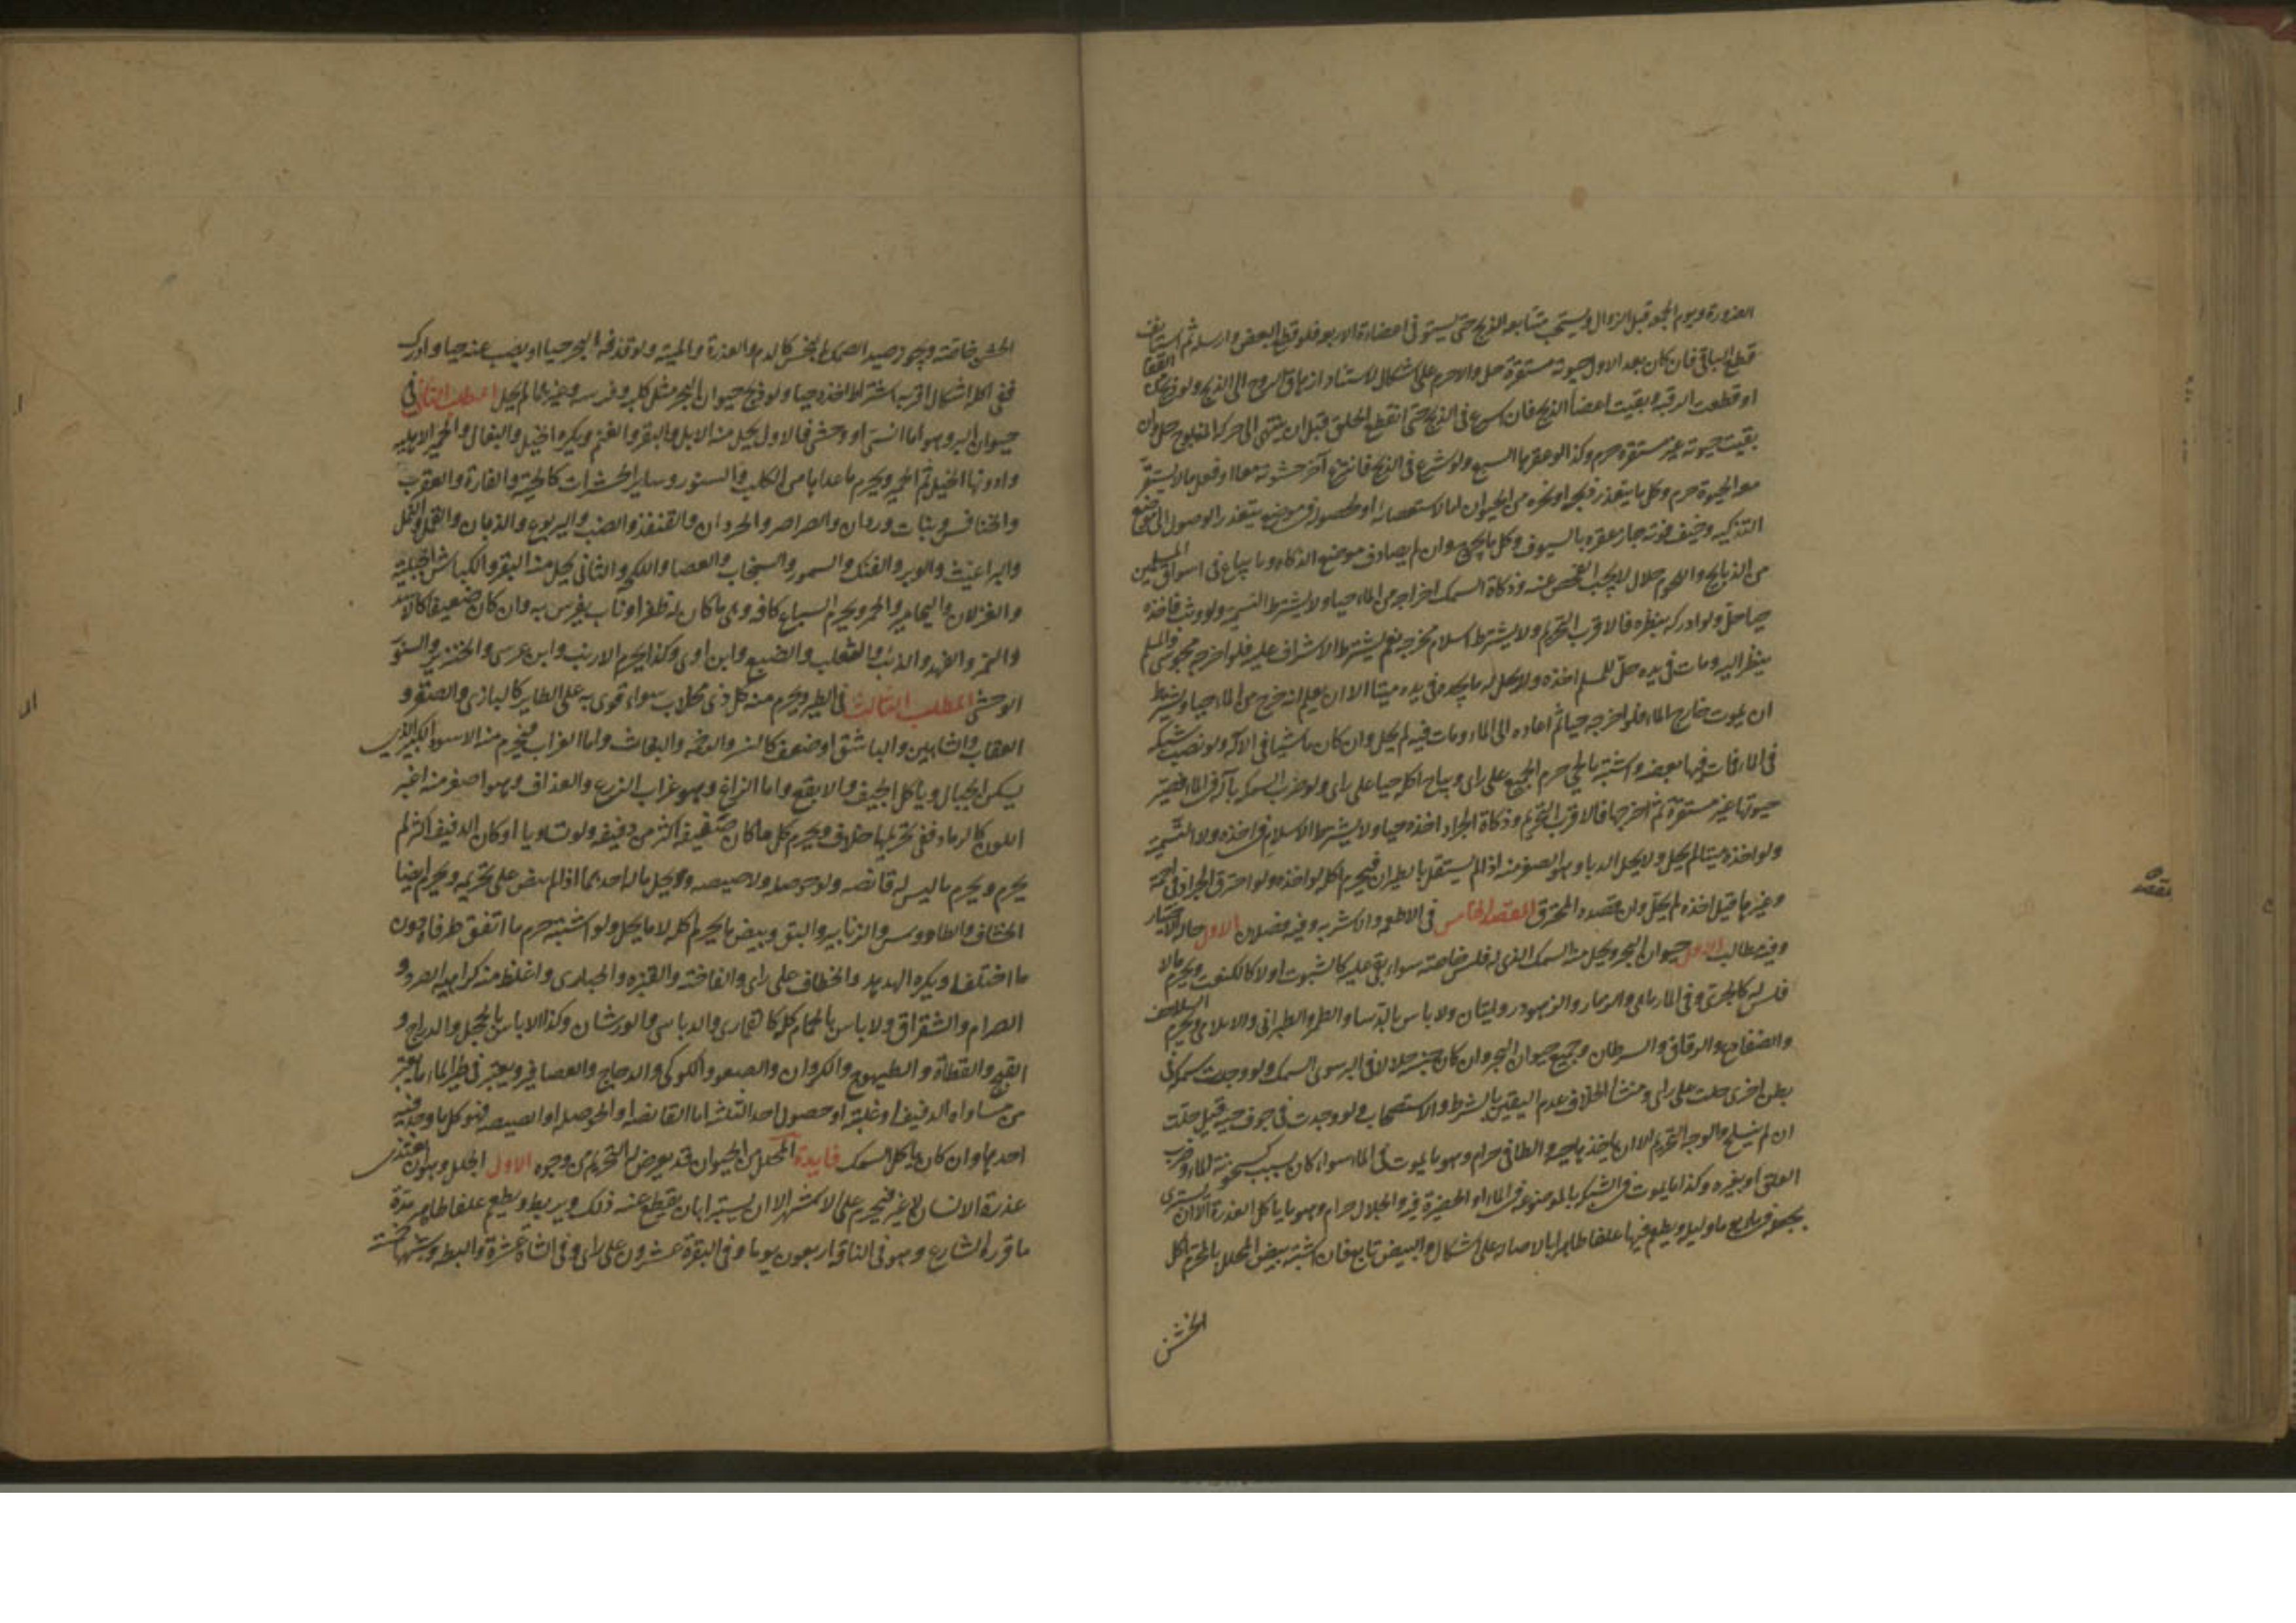 الضرورة ويوم الجمعة قبل الزوال ويستحب متابعة الذبح حتى يستوفى اعضاءه الاربعة فلو قطع البعض وارسله ثم استانف
قطع الباقي فان كان بعد الاول حيوته مستقرة حل والا حرم على اشكال لاستناد ازهاق الروح الى الذبح ولو ذبح من القفا
او قطعت الرقبة وبقيت اعضا الذبح فان اسرع في الذبح حتى انقطع الحلق قبل ان ينتهى الى حركة المذبوح حل وان
بقيت حيوته غير مستقرة حرم وكذا لو عقرها السبع ولو شرع في الذبح فانتزع آخر حشوته معا او فعل ما لا يستقر
معه الحيوة حرم وكل ما يتعذر ذبحه او نحره من الحيوان اما لاستعصائه او لحصوله في موضع يتعذر الوصول الى موضع
التذكية وخيف فوته جاز عقره بالسيوف وكل ما يجرح وان لم يصادف موضع الذكاة وما يباع في اسواق المسلمين
من الذبايح واللحوم حلال لا يجب الفحص عنه وذكاة السمك اخراجه من الماء حيا ولا يشترط التسمية ولو وثب فاخذه
حيا حل ولو ادركه بنظره فالاقرب التحريم ولا يشترط اسلام مخرجه نعم يشترط الاشراف عليه فلو اخرجه مجوسى والمسلم
ينظر اليه ومات في يده حل للمسلم اخذه ولا يحل له ما يجده في يده ميتا الا ان يعلم انه خرج من الماء حيا ويشترط
ان يموت خارج الماء فلو اخرجه حيا ثم اعاده الى الماء ومات فيه لم يحل وان كان ناشبا في الآلة ولو نصب شبكة
في الماء فمات فيها بعضه واشتبه بالحي حرم الجميع على راى ويباح اكله حيا على راى ولو ضرب السمكة بآلة في الماء فصير
حيوتها غير مستقرة ثم اخرجها فالاقرب التحريم وذكاة الجراد اخذه حيا ولا يشترط الاسلام في اخذه ولا التسمية
ولو اخذه ميتا لم يحل ولا يحل الدبا وهو الصغر منه اذا لم يستقل بالطيران فيحرم اكله لو اخذه ولو احترق الجراد في اجمة
وغيرها قبل اخذه لم يحل وان قصده المحرق المقصد الخامس في الاطعمه والاشربه وفيه فصلان الاول حالة الاختيار
وفيه مطالب الاول حيوان البحر ويحل منه السمك الذى له فلس خاصته سواء بقي عليه كالشبوت او لا كالكنعت ويحرم ما لا
فلس له كالجرى وفي المارماهى والزمار والزهو روايتان ولا باس بالربيثا والطمر والطبراني والابلامى ويحرم السلاحف
والضفادع والرقاق والسرطان وجميع حيوان البحر وان كان جنسه حلالا في البر سوى السمك ولو وجدت سمكة في
بطن اخرى حلت على راى ومنشا الخلاف عدم اليقين بالشرط والاستصحاب ولو وجدت في جوف حية قيل حلت
ان لم ينسلخ والوجه التحريم الا ان ياخذها حية والطافي حرام وهو ما يموت في الماء سواء كان بسبب كسخونة الماء وضرب
العلق او بغيره وكذا ما يموت في الشبكة الموضوعة في الماء او الحضيرة فيه والجلال حرام وهو ما ياكل العذرة الا ان يستبرى
بجعله في ماء يوما وليلة ويطعم فيها علفا طاهرا بالاصالة على اشكال والبيض تابع فان اشتبه بيض المحلل بالمحرم اكل
الخشن
الخشن خاصته ويجوز صيد السمك بنجس كالدم والعذرة والميتة ولو قذفه البحر حيا او نضب عنه حيا وادرك
ففي اكله اشكال اقربه اشتراط اخذه حيا ولو ذبح حيوان البحر مثل كلبه وفرسه وغيرهما لم يحل المطلب الثاني في
حيوان البر وهو اما انسى او وحشى فالاول يحل منه الابل والبقر والغنم ويكره الخيل والبغال والحمير الاهليه
وادونها الخيل ثم الحمير ويحرم ما عداها من الكلب والسنور وساير الحشرات كالحية والفارة والعقرب
والخنافس وبنات وردان والصراصر والجرذان والقنفذ والضب واليربوع والذبان والقمل والنمل
والبراغيث والوبر والفنك والسمور والسنجاب والعضا واللكه والثاني يحل منه البقر والكباش الجبلية
والغزلان واليحامير والحمر ويحرم السباع كافه وهى ما كان له ظفر او ناب يفرس به وان كان ضعيفا كالاسد
والنمر والفهد والذئب والثعلب والضبع وابن اوى وكذا يحرم الارنب وابن عرس والخنزير والسنور
الوحشى المطلب الثالث في الطير ويحرم منه كل ذى مخلاب سواء قوى به على الطاير كالبازى والصقر و
العقاب والشاهين والباشق او ضعف كالنسر والرخمه والبغاث واما الغراب فيحرم منه الاسود الكبير الذى
يسكن الجبال وياكل الجيف والابقع واما الزاغ وهو غراب الزرع والغداف وهو اصغر منه اغبر
اللون كالرماد ففي تحريمها خلاف ويحرم كل ما كان صفيفه اكثر من دفيفه ولو تساويا او كان الدفيف اكثر لم
يحرم ويحرم ما ليس له قانصه ولا حوصله ولا صيصه ويحل ما له احدهما اذا لم ينص على تحريمه ويحرم ايضا
الخشاف والطاووس والزنابير والبق وبيض ما يحرم اكله لا ما يحل ولو اشتبه حرم ما اتفق طرفاه دون
ما اختلف ويكره الهدهد والخطاف على راى والفاخته والقبره والحبارى واغلظ منه كراهية الصرد و
الصوام والشقراق ولا باس بالحمام كله كالقمارى والدباسى والورشان وكذا لا باس بالحجل والدراج و
القبج والقطاة والطيهوج والكروان والصعو والكركى والدجاج والعصافير ويعتبر في طير الماء ما يعتبر
من مساواه الدفيف او غلبته او حصول احد الثلثه اما القانصه او الحوصله او الصيصه فيؤكل ما وجد فيه
احدها وان كان ياكل السمك فايدة المحلل من الحيوان قد يعرض له التحريم من وجوه الاول الجلل وهو ان يغتذى
عذرة الانسان لا غير فيحرم على الاشهر الا ان يستبرا بان يقطع عنه ذلك ويربط ويطعم علفا طاهرا مدة
ما قرره الشارع وهو في الناقه اربعون يوما وفي البقرة عشرون على راى وفي الشاة عشرة والبطه وشبهها خمسة